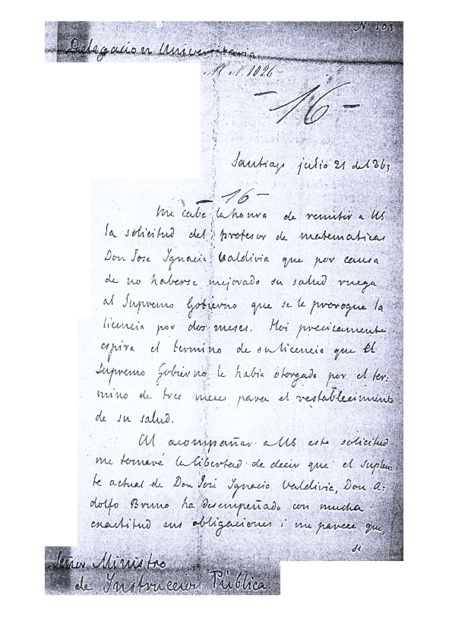 N. 103
Delegacion Universitaria
M. N. 1026
-16-
Santiago julio 21 de 1863
-16-
Me cabe la honra de remitir a US
la solicitud del profesor de matematicas
Don Jose Ignacio Valdivia que por causa
de no haberse mejorado su salud ruega
al Supremo Gobierno que se le prorogue la
licencia por dos meses. Hoi precisamente
espira el termino de su licencia que el
Supremo Gobierno le habia otorgado por el ter-
mino de tres meses para el restablecimiento
de su salud.
Al acompañar a US esta solicitud
me tomaré la libertad de decir que el suplen-
te actual de Don José Ignacio Valdivia, Don A-
dolfo Bruno ha desempeñado con mucha
exactitud sus obligaciones i me parece que
si
Señor Ministro
de Instruccion Pública